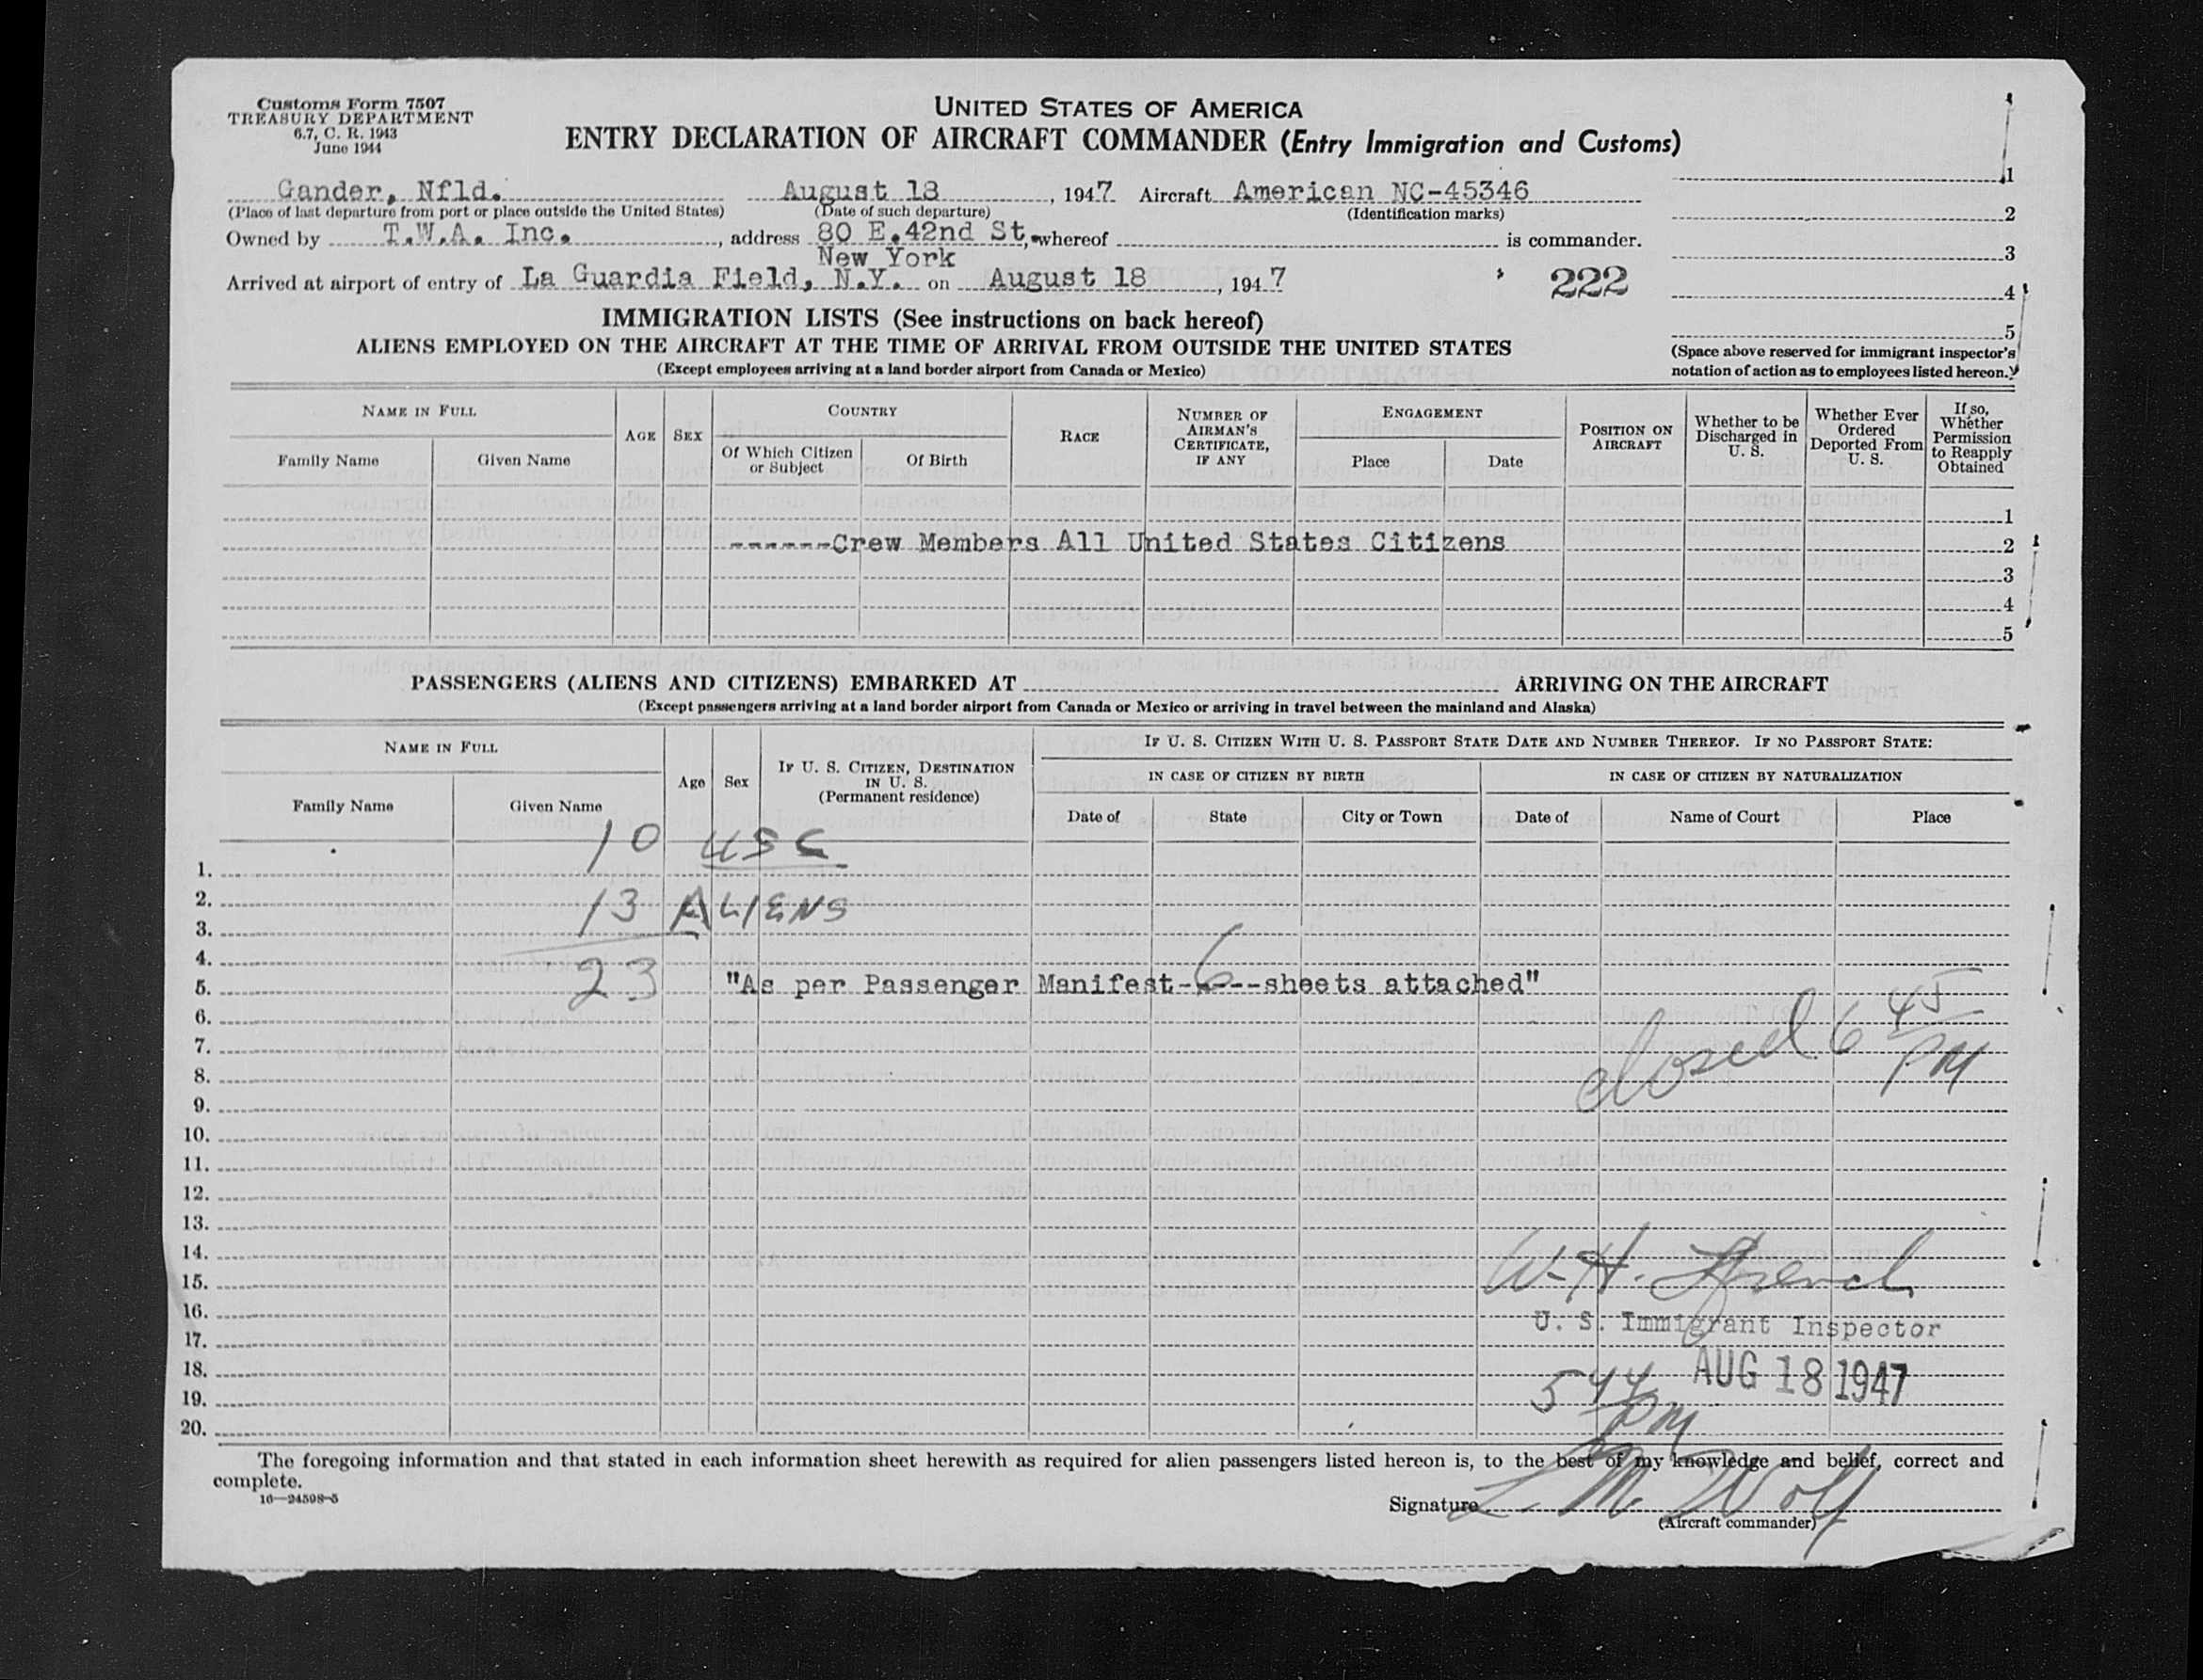 Customs Form 7507
TREASURY DEPARTMENT
6.7, C. R. 1943
June 1944
UNITED STATES OF AMERICA
ENTRY DECLARATION OF AIRCRAFT COMMANDER (Entry Immigration and Customs)
Gander, Nfld. August 18, 1947 Aircraft American NC-45346
(Place of last departure from port or place outside the United States) (Date of such departure) (Identification marks)
Owned by T.W.A. Inc., address 80 E.42nd St., whereof is commander.
New York
Arrived at airport of entry of La Guardia Field, N.Y. on August 18, 1947
222
1
2
3
4
5
(Space above reserved for immigrant inspector's
notation of action as to employees listed hereon.)
IMMIGRATION LISTS (See instructions on back hereof)
ALIENS EMPLOYED ON THE AIRCRAFT AT THE TIME OF ARRIVAL FROM OUTSIDE THE UNITED STATES
(Except employees arriving at a land border airport from Canada or Mexico)
NAME IN FULL
Family Name
Given Name
AGE
SEX
COUNTRY
Of Which Citizen
or Subject
Of Birth
RACE
NUMBER OF
AIRMAN'S
CERTIFICATE,
IF ANY
ENGAGEMENT
Place
Date
POSITION ON
AIRCRAFT
Whether to be
Discharged in
U. S.
Whether Ever
Ordered
Deported From
U. S.
If so,
Whether
Permission
to Reapply
Obtained
1
------Crew Members All United States Citizens 2
3
4
5
PASSENGERS (ALIENS AND CITIZENS) EMBARKED AT ARRIVING ON THE AIRCRAFT
(Except passengers arriving at a land border airport from Canada or Mexico or arriving in travel between the mainland and Alaska)
NAME IN FULL
Family Name
Given Name
Age
Sex
IF U. S. CITIZEN, DESTINATION
IN U. S.
(Permanent residence)
IF U. S. CITIZEN WITH U. S. PASSPORT STATE DATE AND NUMBER THEREOF. IF NO PASSPORT STATE:
IN CASE OF CITIZEN BY BIRTH
IN CASE OF CITIZEN BY NATURALIZATION
Date of
State
City or Town
Date of
Name of Court
Place
10 USC
1.
2. 13 ALIENS
3.
4.
5. 23 "As per Passenger Manifest-6--sheets attached"
6.
7. closed 6 45 PM
8.
9.
10.
11.
12.
13.
14.
15. W. H. French
16.
17. U. S. Immigrant Inspector
18. AUG 18 1947
19. 5 44 PM
20.
The foregoing information and that stated in each information sheet herewith as required for alien passengers listed hereon is, to the best of my knowledge and belief, correct and
complete.
16—24598-5
Signature L. M. Wolf
(Aircraft commander)